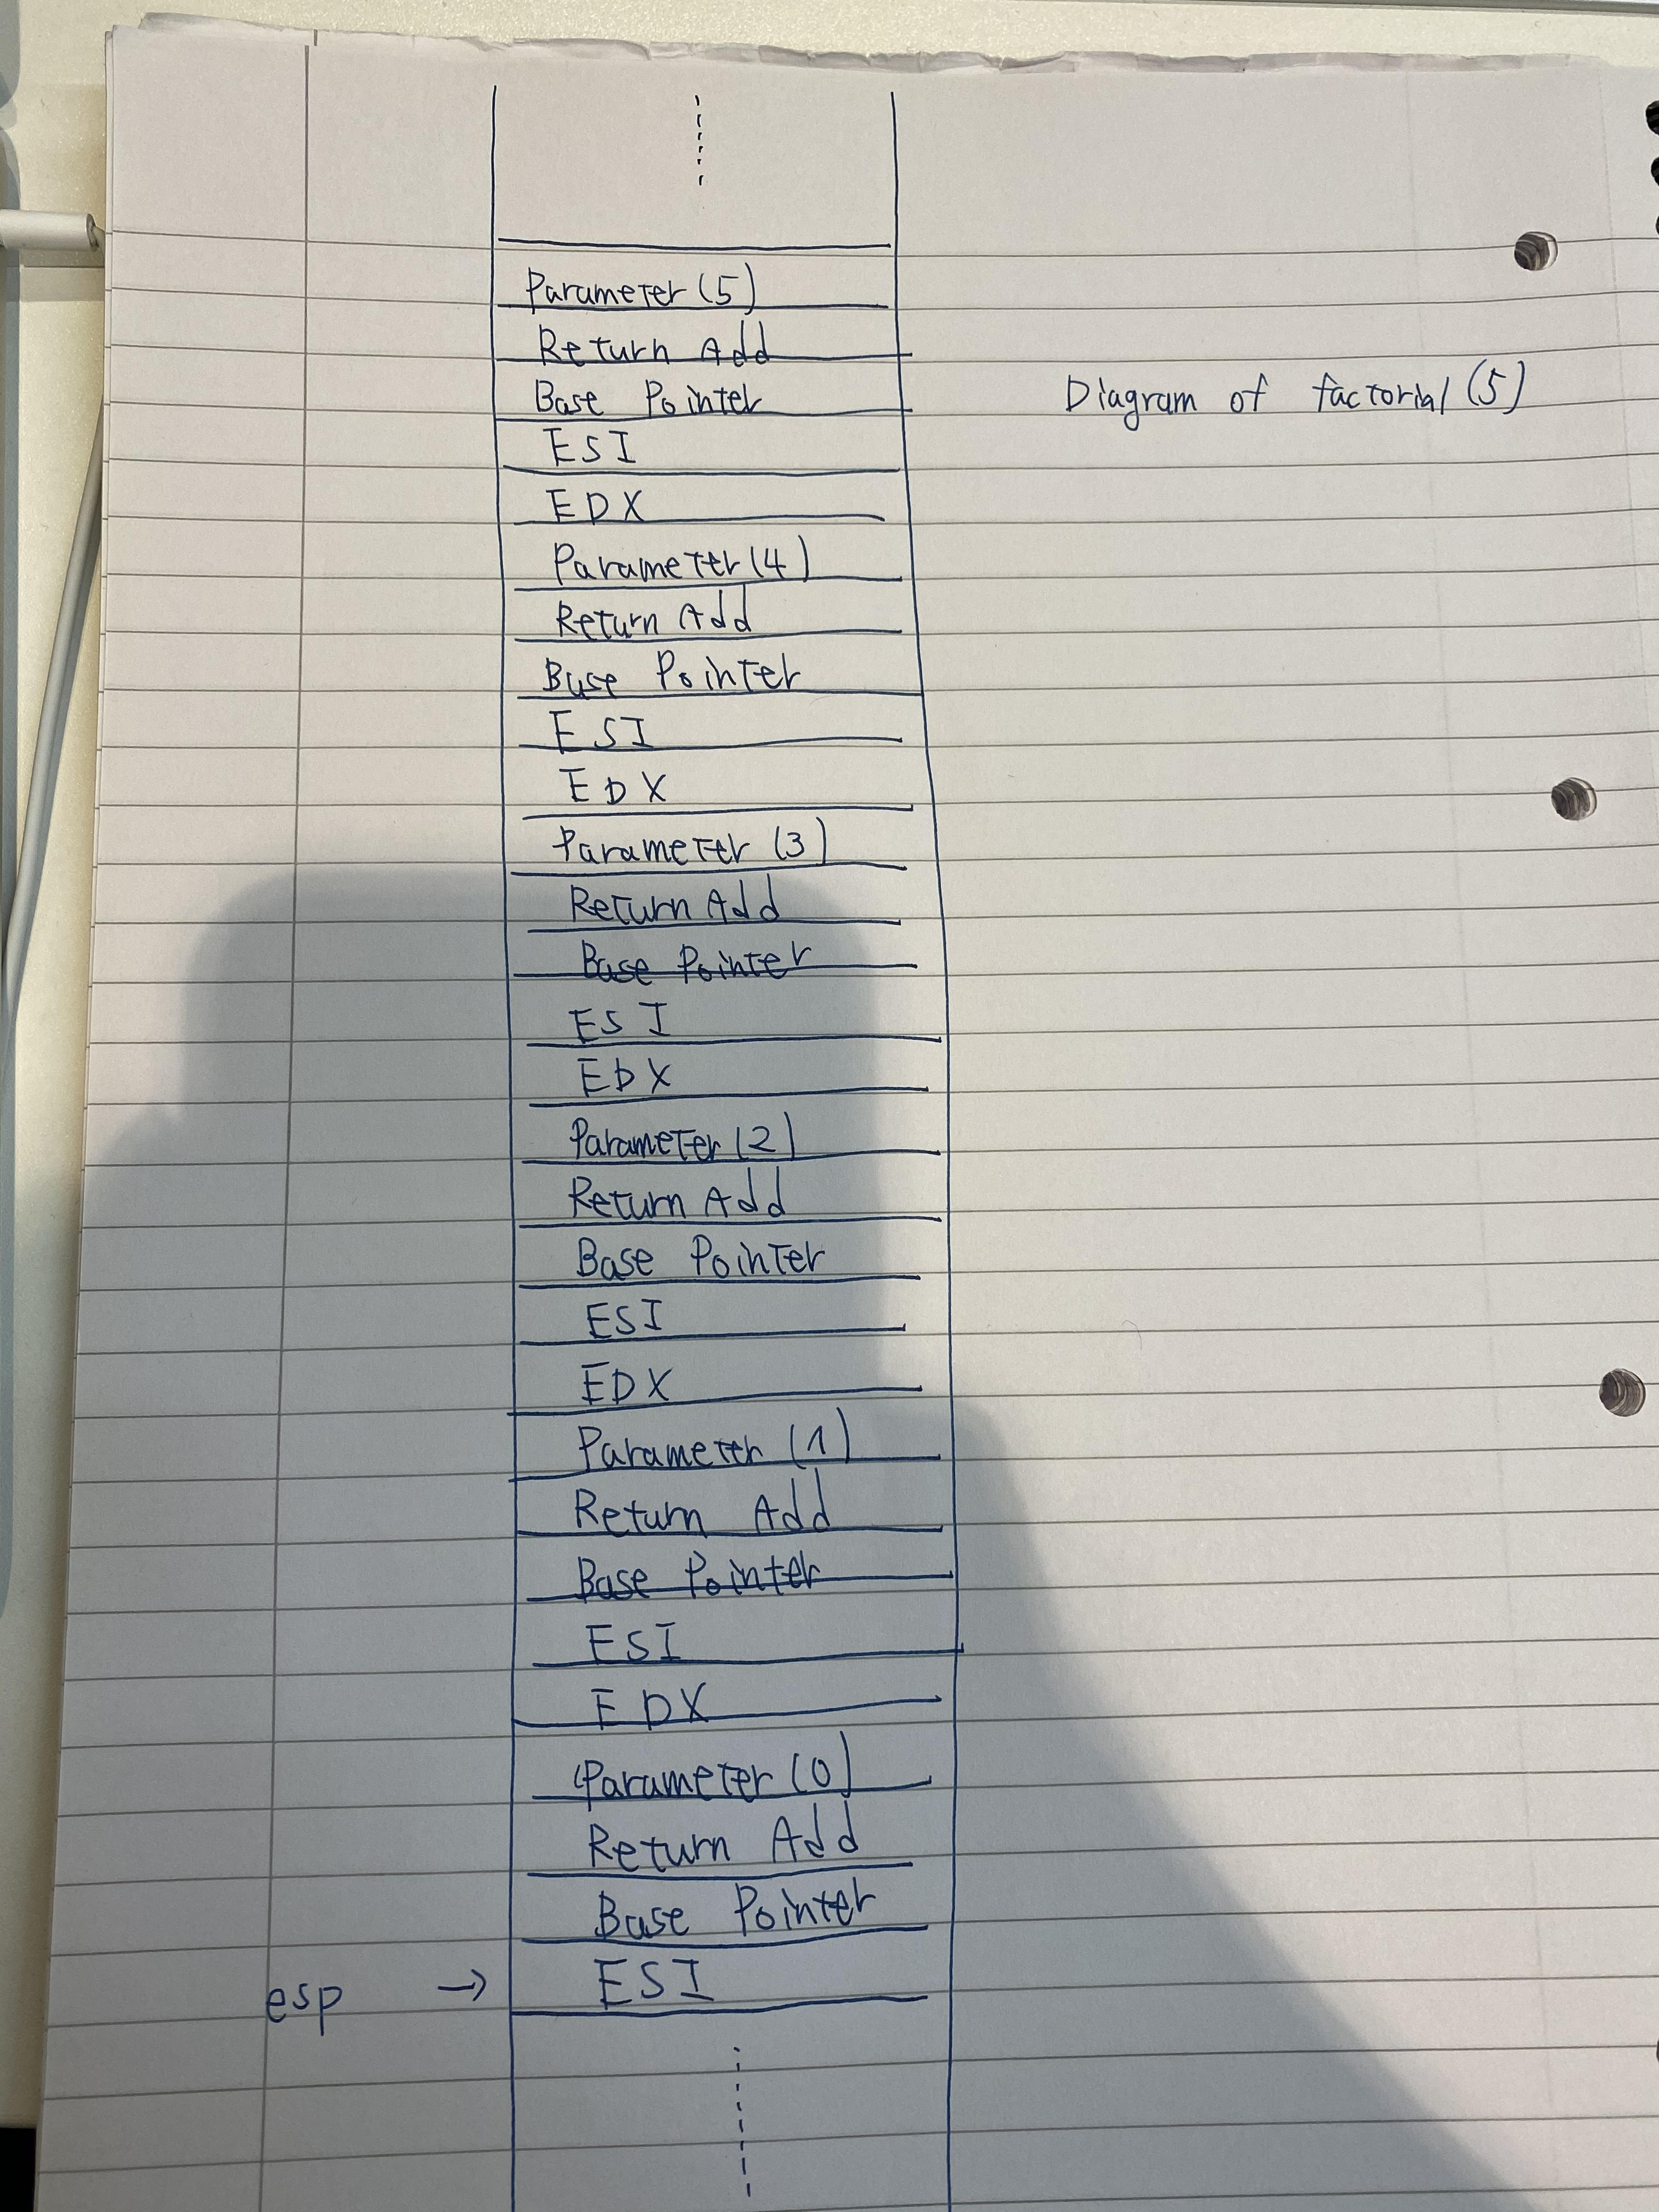 Parameter (5)
Return Add
Base Pointer
Diagram of factorial (5)
ESI
EDX
Parameter (4)
Return Add
Base Pointer
ESI
EDX
Parameter (3)
Return Add
Base Pointer
ESI
EDX
Parameter (2)
Return Add
Base Pointer
ESI
EDX
Parameter (1)
Return Add
Base Pointer
ESI
EDX
Parameter (0)
Return Add
Base Pointer
esp → ESI